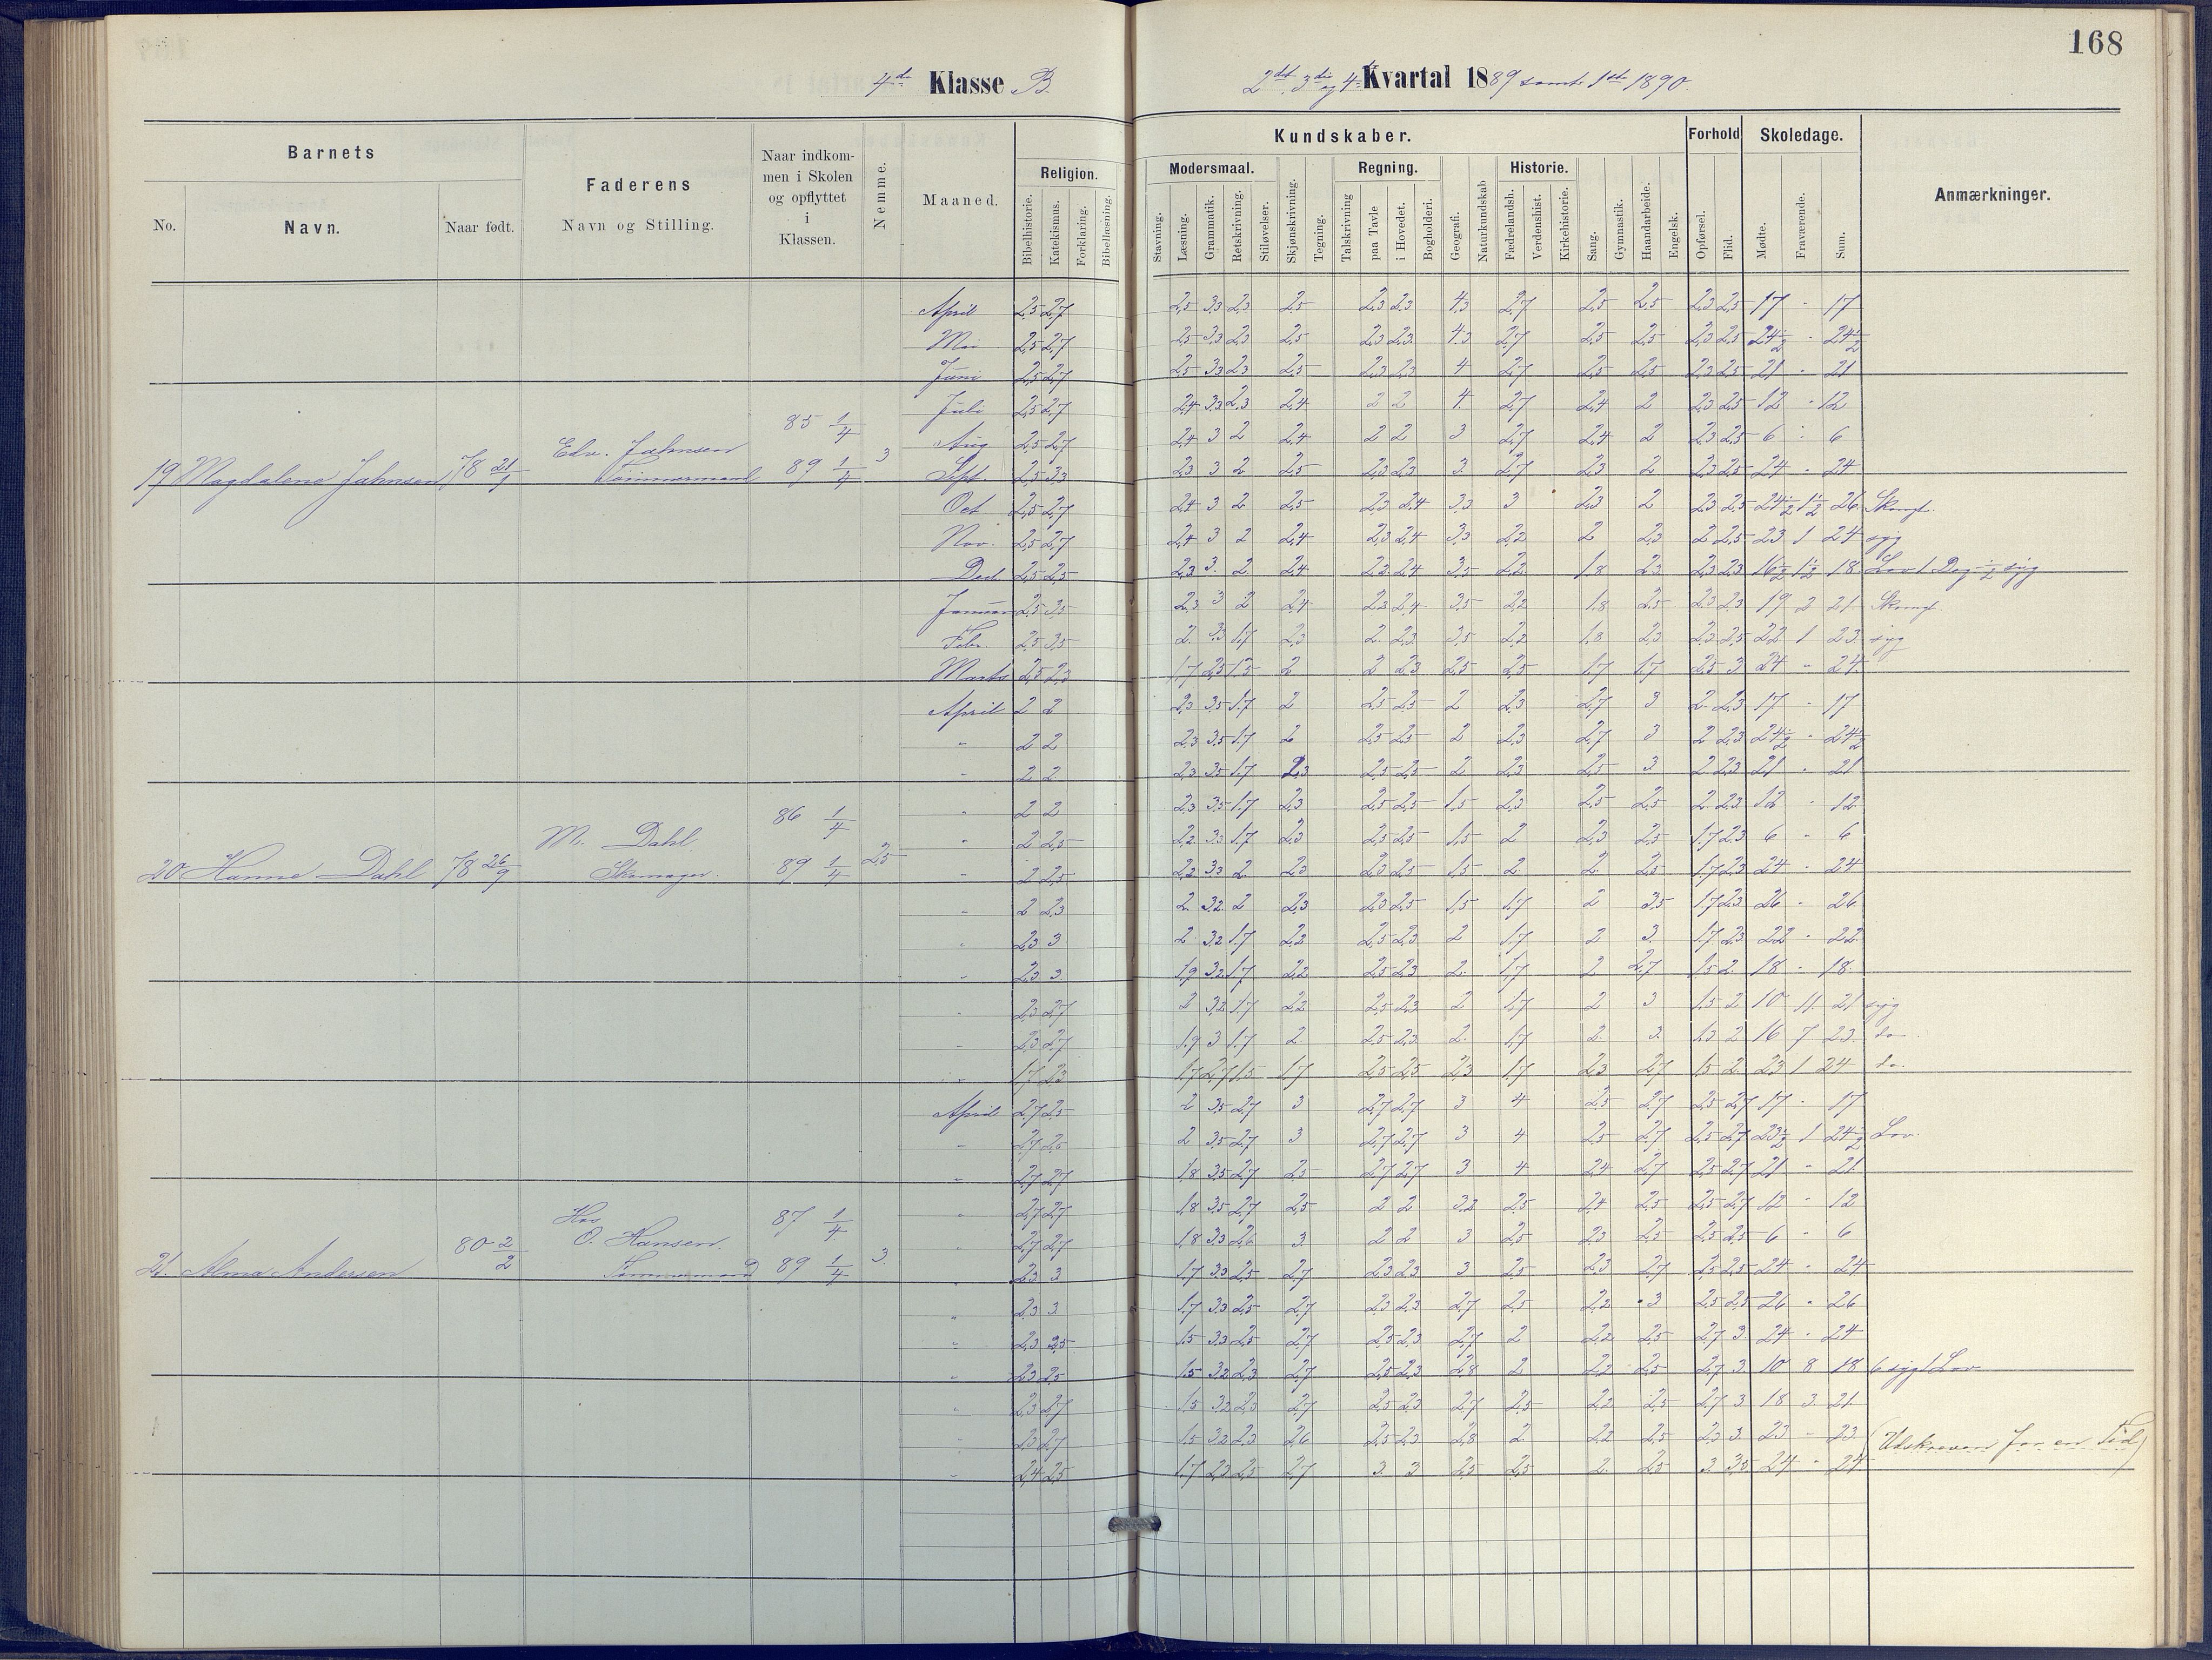 168
4de Klasse B.
2det 3die og 4de Kvartal 1889 samt 1ste 1890.
Barnets
Faderens
Naar indkommen i Skolen og opflyttet i Klassen.
Nemme.
Maaned.
Religion.
Kundskaber.
Modersmaal.
Regning.
Historie.
Forhold
Skoledage.
Anmærkninger.
No.
Navn.
Naar født.
Navn og Stilling.
Bibelhistorie.
Katekismus.
Forklaring.
Bibellæsning.
Stavning.
Læsning.
Grammatik.
Retskrivning.
Stiløvelser.
Skjønskrivning.
Tegning.
Talskrivning
paa Tavle
i Hovedet.
Bogholderi.
Geografi.
Naturkundskab
Fædrelandsh.
Verdenshist.
Kirkehistorie.
Sang.
Gymnastik.
Haandarbeide.
Engelsk.
Opførsel.
Flid.
Mødte.
Fraværende.
Sum.
19 Magdalene Jahnsen 78 21/1 Edv. Jahnsen Tømmermand 85 1/4 89 1/4 3
April 2,5 2,7 2,5 3,3 2,3 2,5 2,3 2,3 4,3 2,7 2,5 2,5 2,3 2,5 17 - 17
Mai 2,5 2,7 2,5 3,3 2,3 2,5 2,3 2,3 4,3 2,7 2,5 2,5 2,3 2,5 24 1/2 - 24 1/2
Juni 2,5 2,7 2,5 3,3 2,3 2,5 2,3 2,3 4 2,7 2,5 2,5 2,3 2,5 21 - 21
Juli 2,5 2,7 2,4 3,3 2,3 2,4 2 2 4 2,7 2,4 2 2,3 2,5 12 - 12
Aug 2,5 2,7 2,4 3 2 2,4 2 2 3 2,7 2,4 2 2,3 2,5 6 - 6
Sept. 2,5 3,3 2,3 3 2 2,5 2,3 2,3 3 2,7 2,3 2 2,3 2,5 24 - 24
Oct. 2,5 2,7 2,4 3 2 2,5 2,3 2,4 3,3 3 2,3 2 2,3 2,5 24 1/2 1 1/2 26
Nov. 2,5 2,7 2,4 3 2 2,4 2,3 2,4 3,3 2,2 2 2,3 2 2,5 23 1 24 syg
Decl 2,5 2,5 2,3 3 2 2,4 2,2 2,4 3,5 2,2 1,8 2,3 2,3 2,3 16 1/2 1 1/2 18 Lov 1 Dag 1/2 syg
Januar 2,5 3,5 2,3 3 2 2,4 2,2 2,4 3,5 2,2 1,8 2,5 2,3 2,3 19 2 21
Febr. 2,5 3,5 2 3,3 1,7 2,3 2 2,3 3,5 2,2 1,8 2,3 2,3 2,5 22 1 23 syg
Marts 2,5 2,3 1,7 2,5 1,5 2 2 2,3 2,5 2,5 1,7 1,7 2,5 3 24 - 24
20 Hanne Dahl 78 26/9 M. Dahl Skomager. 86 1/4 89 1/4 2,5
April 2 2 2,3 3,5 1,7 2 2,5 2,5 2 2,3 2,7 3 2 2,3 17 - 17
" 2 2 2,3 3,5 1,7 2 2,5 2,5 2 2,3 2,7 3 2 2,3 24 1/2 - 24 1/2
" 2 2 2,3 3,5 1,7 2,3 2,5 2,5 2 2,3 2,5 3 2 2,3 21 - 21
" 2 2 2,3 3,5 1,7 2,3 2,5 2,5 1,5 2,3 2,5 2,5 2 2,3 12 - 12
" 2 2,5 2,2 3,3 1,7 2,3 2,5 2,5 1,5 2 2,3 2,5 1,7 2,3 6 - 6
" 2 2,5 2,2 3,3 2 2,3 2,3 2,5 1,5 2 2 2,5 1,7 2,3 24 - 24
" 2 2,3 2 3,2 2 2,3 2,3 2,5 1,5 1,7 2 3,5 1,7 2,3 26 - 26
" 2,3 3 2 3,2 1,7 2,2 2,5 2,3 2 1,7 2 3 1,7 2,3 22 - 22
" 2,3 3 1,9 3,2 1,7 2,2 2,5 2,3 2 1,7 2 2,7 1,5 2 18 - 18
" 2,3 2,7 2 3,2 1,7 2,2 2,5 2,3 2 1,7 2 3 1,5 2 10 11 21 syg
" 2,3 2,7 1,9 3 1,7 2 2,5 2,3 2 1,7 2 3 1,3 2 16 7 23 do
" 1,7 2,3 1,7 2,7 1,5 1,7 2,5 2,5 2,3 1,7 2,3 2,7 1,5 2 23 1 24 do
21. Alma Andersen 80 2/2 Hos O. Hansen. Tømmermand 87 1/4 89 1/4 3
April 2,7 2,5 2 3,5 2,7 3 2,7 2,7 3 4 2,5 2,7 2,5 2,7 17 - 17
" 2,7 2,5 2 3,5 2,7 3 2,7 2,7 3 4 2,5 2,7 2,5 2,7 23 1/2 1 24 1/2 Lov.
" 2,7 2,7 1,8 3,5 2,7 2,5 2,7 2,7 3 4 2,4 2,7 2,5 2,7 21 - 21
" 2,7 2,7 1,8 3,5 2,7 2,5 2 2 3,2 2,5 2,4 2,5 2,5 2,7 12 - 12
" 2,7 2,7 1,8 3,3 2,6 3 2 2 3 2,5 2,3 2,5 2,5 2,5 6 - 6
" 2,3 3 1,7 3,3 2,5 2,7 2,3 2,3 3 2,5 2,3 2,7 2,5 2,5 24 - 24
" 2,3 3 1,7 3,3 2,5 2,7 2,3 2,3 2,7 2,5 2,2 3 2,5 2,5 26 - 26
" 2,3 2,5 1,5 3,3 2,5 2,7 2,5 2,3 2,7 2 2,2 2,5 2,7 3 24 - 24
" 2,3 2,5 1,5 3,2 2,3 2,7 2,5 2,3 2,8 2 2,2 2,5 2,7 3 10 8 18 6 syg 1 Lov
" 2,3 2,7 1,5 3,2 2,3 2,7 2,5 2,3 2,7 2,5 2,2 2,5 2,7 3 18 3 21
" 2,3 2,7 1,5 3,2 2,3 2,6 2,5 2,3 2,8 2 2,2 2,5 2,3 3 23 - 23
" 2,4 2,5 1,7 2,3 2,5 2,7 3 3 2,5 2,5 2 2,5 3 3,5 24 - 24
(Udskreven for en Tid)